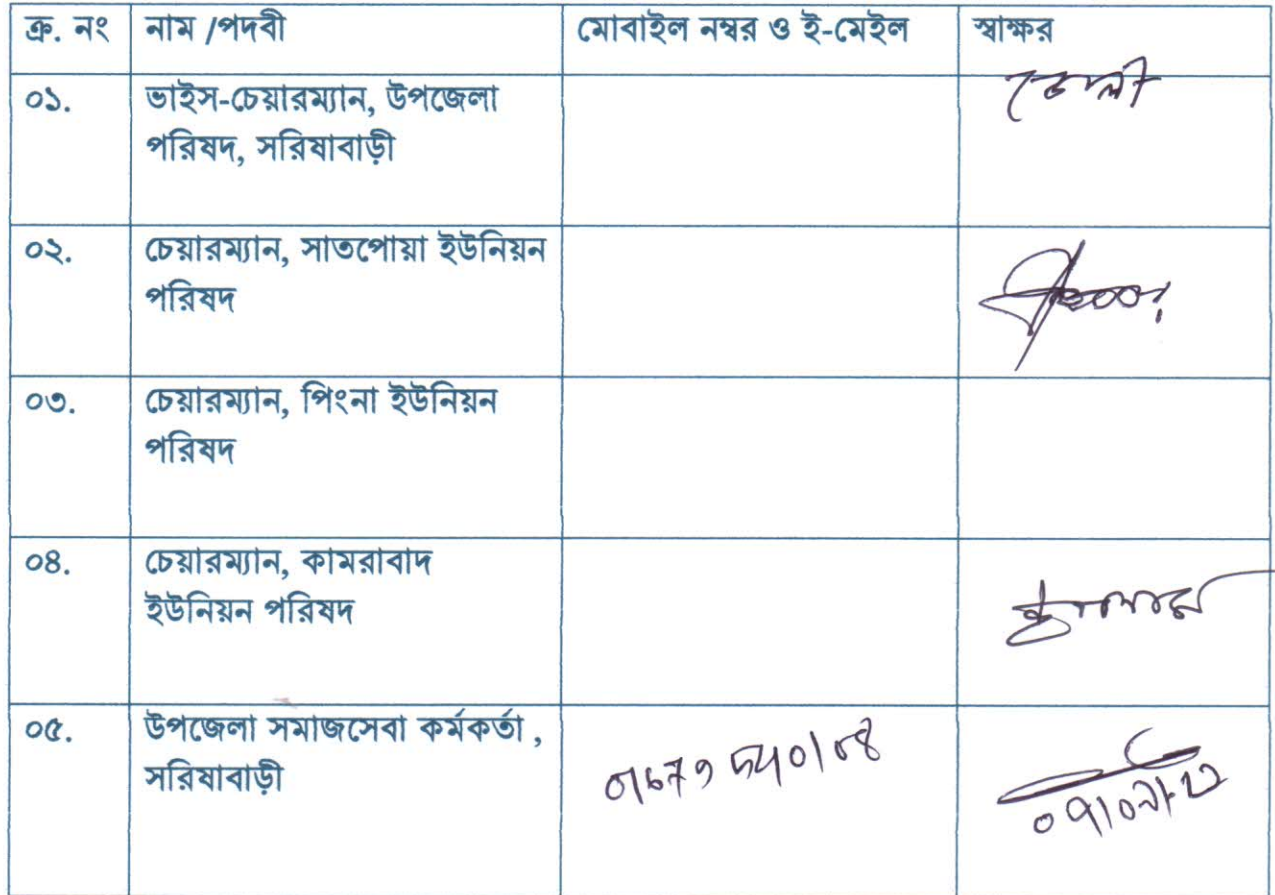 ক্র. নং নাম /পদবী মোবাইল নম্বর ও ই-মেইল স্বাক্ষর
০১. ভাইস-চেয়ারম্যান, উপজেলা
পরিষদ, সরিষাবাড়ী
০২. চেয়ারম্যান, সাতপোয়া ইউনিয়ন
পরিষদ
০৩. চেয়ারম্যান, পিংনা ইউনিয়ন
পরিষদ
০৪. চেয়ারম্যান, কামরাবাদ
ইউনিয়ন পরিষদ
০৫. উপজেলা সমাজসেবা কর্মকর্তা ,
সরিষাবাড়ী